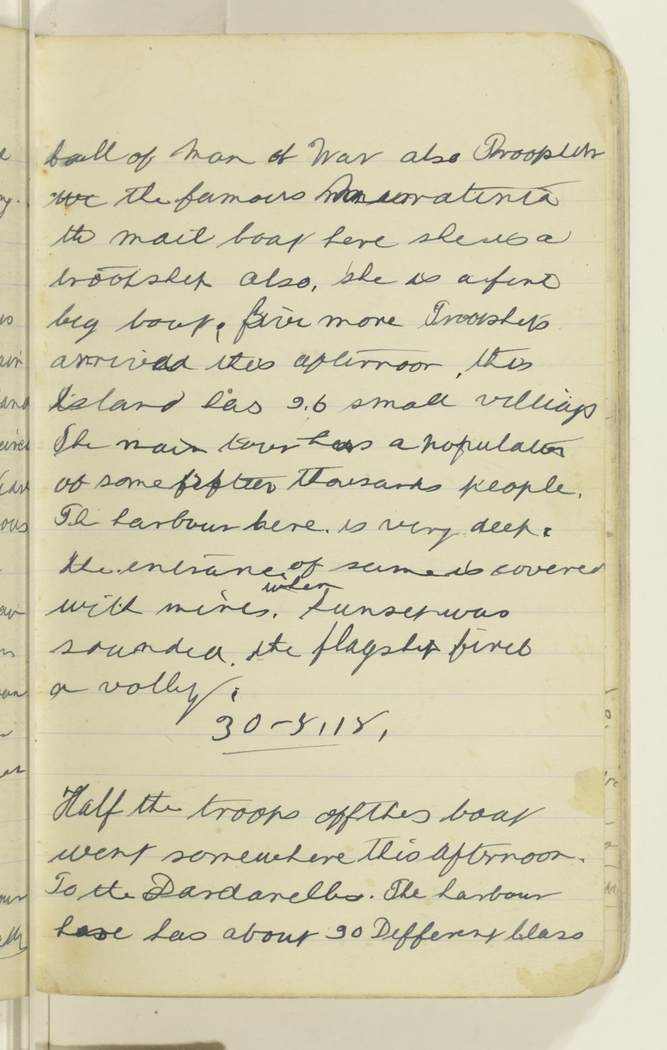 ball of Man of War also Troopships
we the famous Mauratinia
the mail boat here she is a
troopship also, she is a fine
big boat, five more Troopships
arrived this afternoon, this
Island has 26 small villiags
The main town has a population
of some fifteen thousands people.
The harbour here is very deep.
the entrance of same is covered
with mines. when Sunset was
sounded, the flagship fired
a volley.
30-8,15,
Half the troops off this boat
went somewhere this afternoon.
To the Dardanelles. The harbour
here has about 30 Different Class